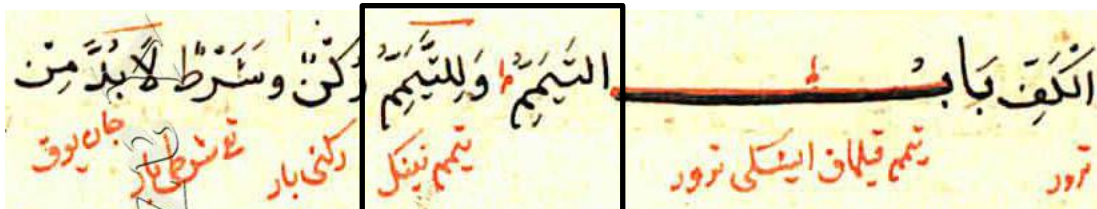 الْكَفِّ بَابُ التَّيَمُّمِ ط وَلِلتَّيَمُّمِ رُكْنٌ وَشَرْطٌ لَا بُدَّ مِنْ
ترور تيمم قيلماق ايشكى ترور تيمم نينكل ركنى بار تى شرطى بار جاره يوق